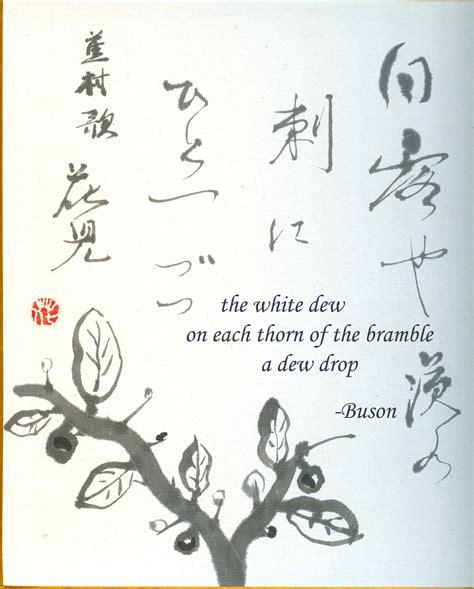 白露や茨の
刺に
ひとつづつ
蕪村歌
the white dew
on each thorn of the bramble
a dew drop
-Buson